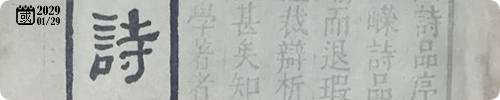 國 2029
01/29
詩品序
嶸詩品
而退瑕
裁辯析
甚矣知
學著者
詩